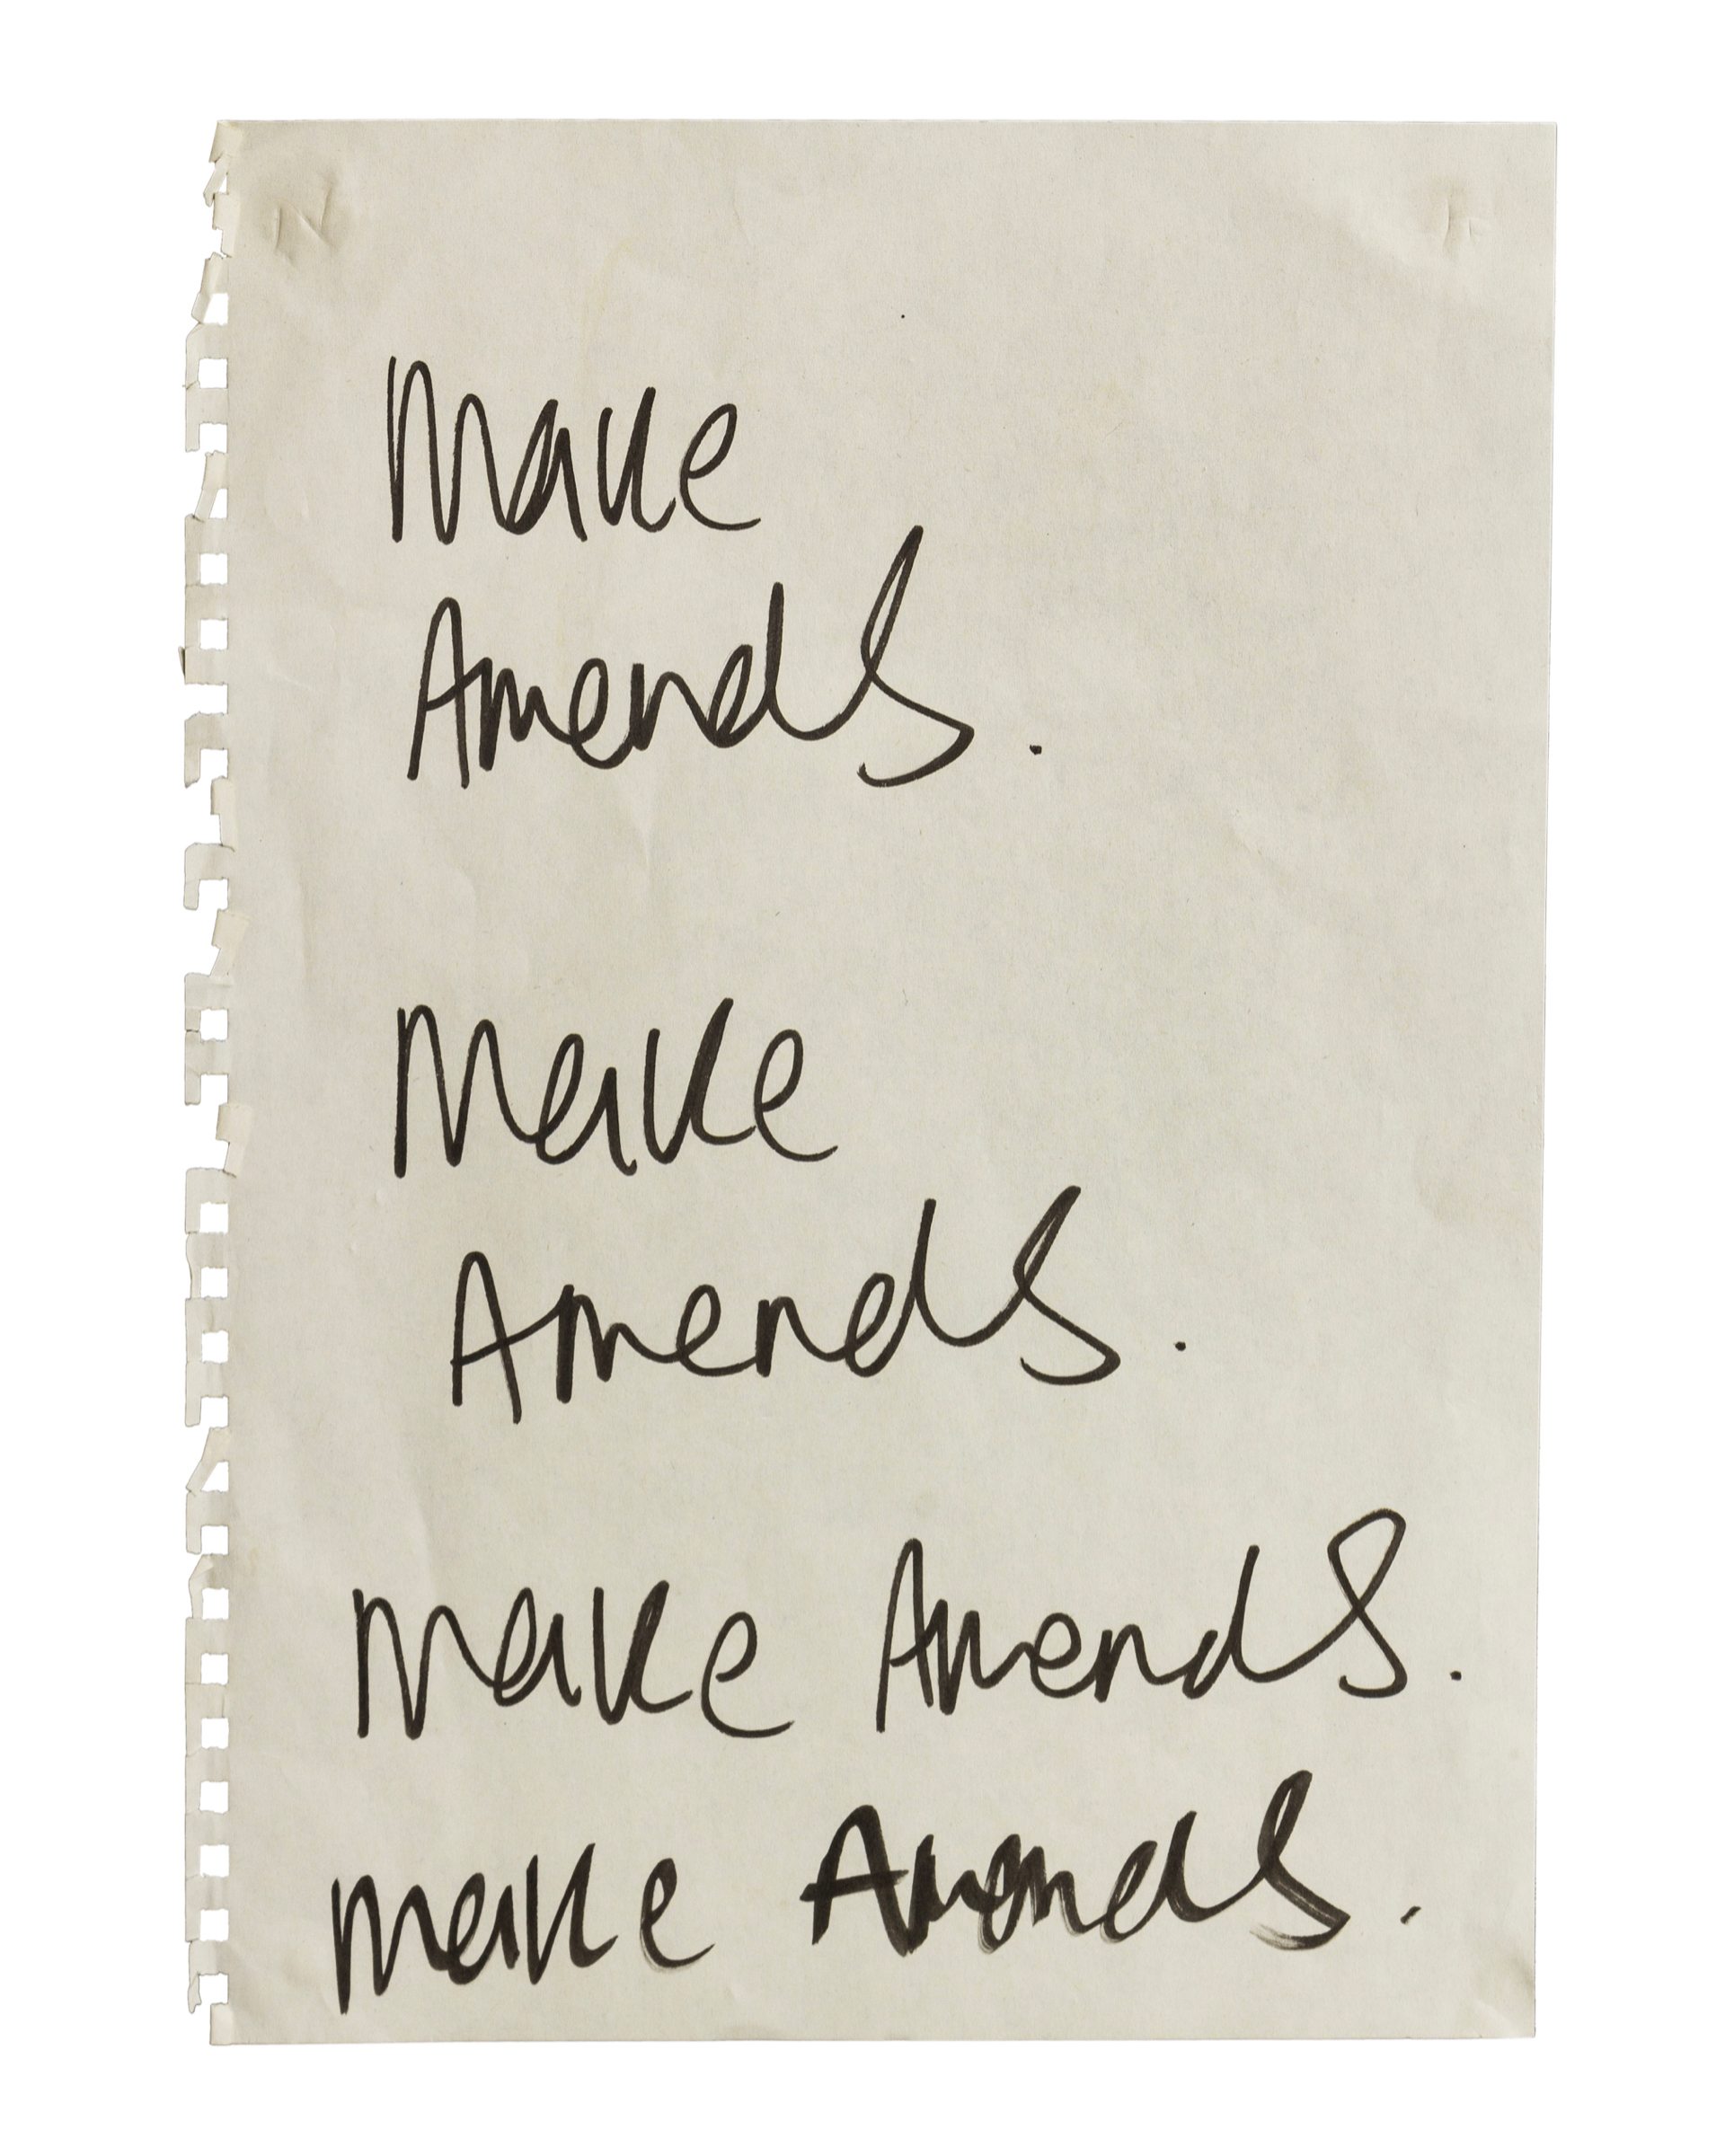 Make
Amends.
Make
Amends.
Make Amends.
Make Amends.